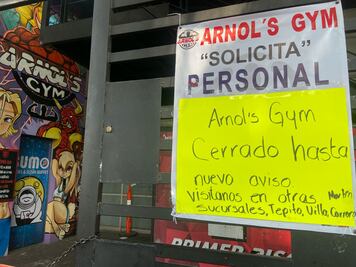 ARNOL'S
GYM
SUMO
ARNOL'S GYM
"SOLICITA"
PERSONAL
Arnol's Gym
Cerrado hasta
nuevo aviso
visitanos en otras
sucursales, Tepito, Villa, Carrera